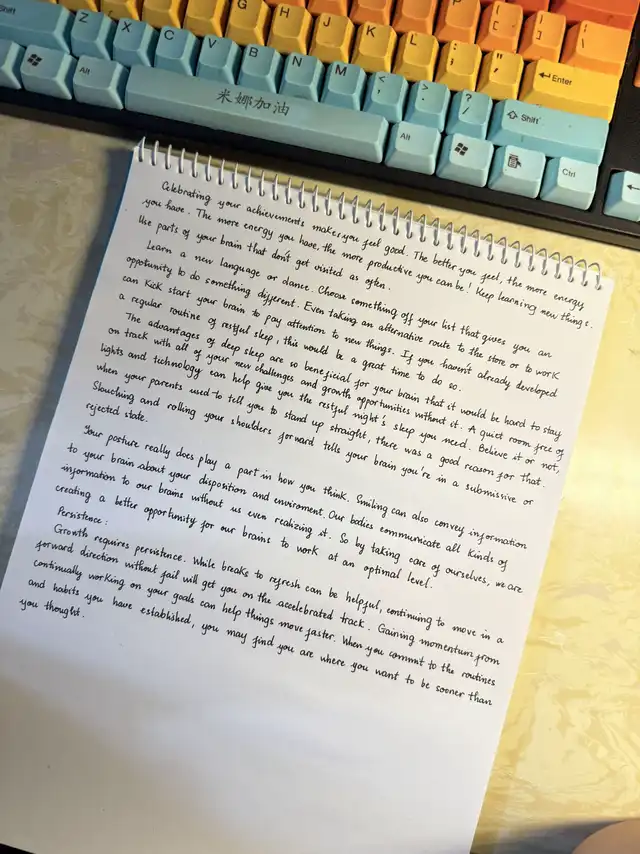 Shift { [ } ] | \
G H J K L : ; " ' Enter
Z X C V B N M < , > . ? / Shift
Alt 米娜加油 Alt Ctrl
Celebrating your achievements makes you feel good. The better you feel, the more energy
you have. The more energy you have, the more productive you can be! Keep learning new things.
Use parts of your brain that don't get visited as often.
Learn a new language or dance. Choose something off your list that gives you an
oppotunity to do something different. Even taking an alternative route to the store or to work
can kick start your brain to pay attention to new things. If you haven't already developed
a regular routine of restful sleep, this would be a great time to do so.
The advantages of deep sleep are so beneficial for your brain that it would be hard to stay
on track with all of your new challenges and growth opportunities without it. A quiet room free of
lights and technology can help give you the restful night's sleep you need. Believe it or not,
when your parents used to tell you to stand up straight, there was a good reason for that.
Slouching and rolling your shoulders forward tells your brain you're in a submissive or
rejected state.
Your posture really does play a part in how you think. Smiling can also convey information
to your brain about your disposition and enviroment. Our bodies communicate all kinds of
information to our brains without us even realizing it. So by taking care of ourselves, we are
creating a better opportunity for our brains to work at an optimal level.
Persistence:
Growth requires persistence. While breaks to refresh can be helpful, continuing to move in a
forward direction without fail will get you on the accelebrated track. Gaining momentum from
continually working on your goals can help things move faster. When you commit to the routines
and habits you have established, you may find you are where you want to be sooner than
you thought.